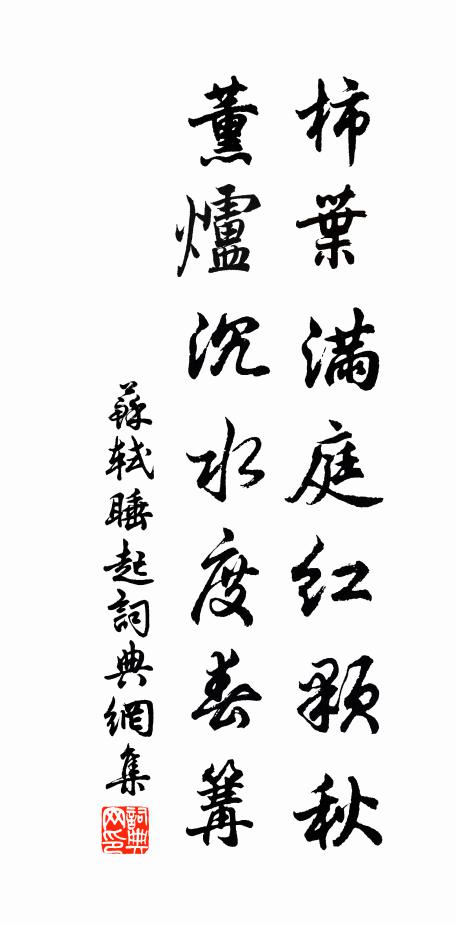 柿葉滿庭紅顆秋
薰爐沉水度春篝
蘇軾睡起詞典網集
詞典网印